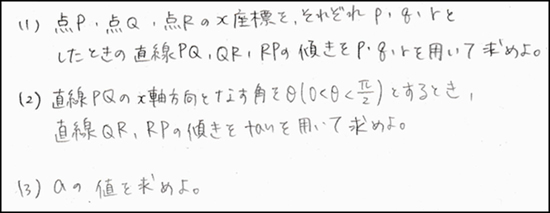 (1) 点P、点Q、点Rのx座標を、それぞれ p・q・rと
したときの直線PQ、QR、RPの傾きをp・q・rを用いて求めよ。
(2) 直線PQのx軸方向となす角をθ(0<θ<π/2)とするとき、
直線QR、RPの傾きをtanを用いて求めよ。
(3) aの値を求めよ。